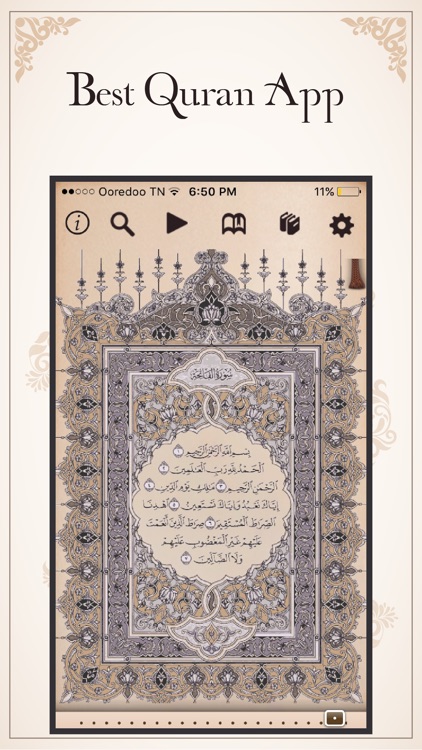 Best Quran App
Ooredoo TN 6:50 PM 11%
i
سُورَةُ الفَاتِحَة
بِسْمِ اللَّهِ الرَّحْمَٰنِ الرَّحِيمِ ١
الْحَمْدُ لِلَّهِ رَبِّ الْعَالَمِينَ ٢
الرَّحْمَٰنِ الرَّحِيمِ ٣ مَالِكِ يَوْمِ الدِّينِ ٤
إِيَّاكَ نَعْبُدُ وَإِيَّاكَ نَسْتَعِينُ ٥ اهْدِنَا
الصِّرَاطَ الْمُسْتَقِيمَ ٦ صِرَاطَ الَّذِينَ أَنْعَمْتَ
عَلَيْهِمْ غَيْرِ الْمَغْضُوبِ عَلَيْهِمْ
وَلَا الضَّالِّينَ ٧